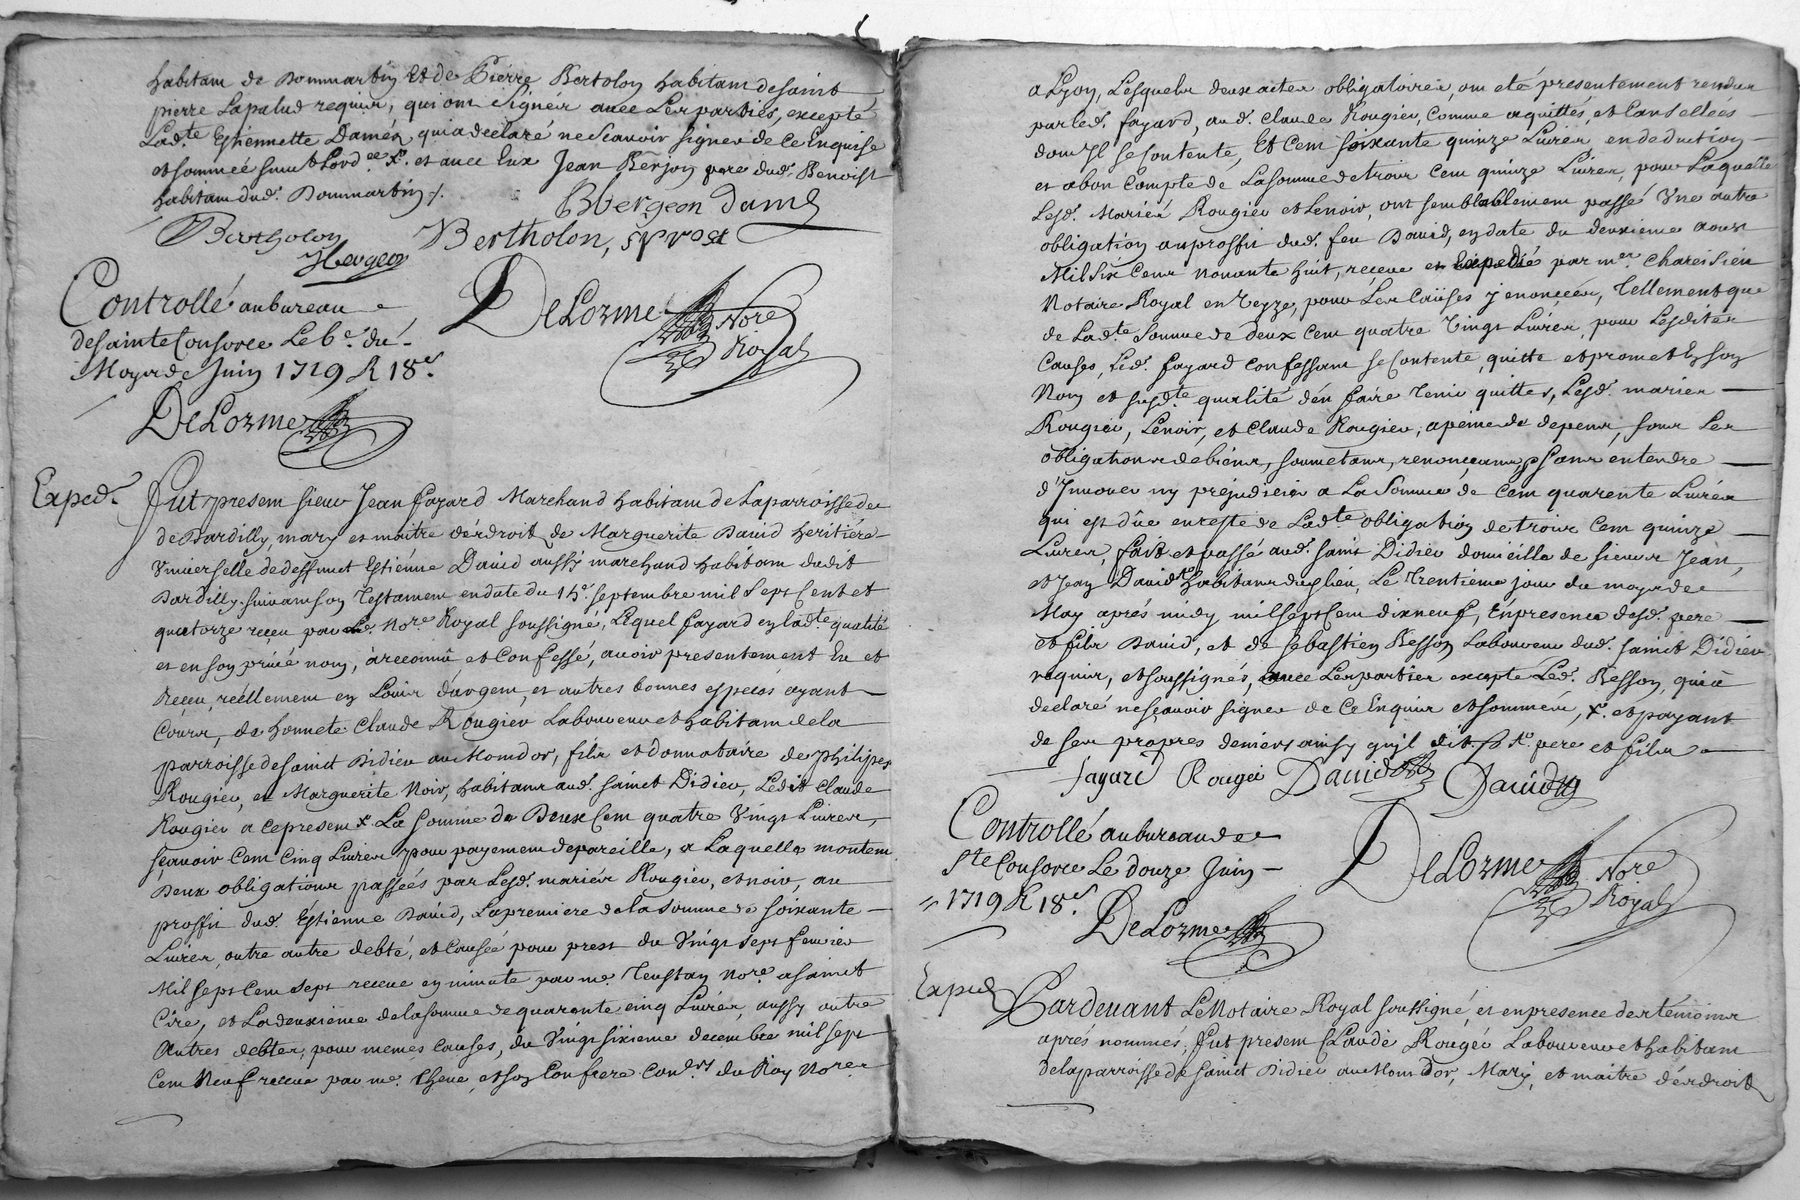 habitant de Dommartin Et de Pierre Bertolon habitant de saint
pierre Lapalud requier, qui ont signer avec Les parties, excepté
Lad.te Estiennette Damez, qui a declaré ne scavoir signer de ce Enquise
et sommeé et avec Eux Jean Berjon pere dud. Benoist
habitant dud. Dommartin ./.
Bergeon
Bertholon
Bertholon
Controllé au bureau
de sainte Consorce Le 6e. du
Moys de Juin 1719 R 18s.
DeLorme Nore
Royal
DeLorme
Exped.
Fut present sieur Jean fayard Marchand habitant de La parroisse de
de Dardilly mary et maitre des droit de Marguerite David heritiére
Universelle de deffunct Estiénne David aussy marchand habitant dudit
Dardilly suivant son Testament en date du septembre mil Sept Cent et
quatorze reçeu par Le Nore Royal soussigné, Lequel fayard en lad.te qualité
et en son privé nom, a reconnu et Confessé, avoir presentement Eu et
Receu réellement en Louis d'argent, et autres bonnes especes ayant
Cours, de honnete Claude Rougier Laboureur et habitant de la
parroisse de sainct Didier au Montdor, fils et donnataire de Philipes
Rougier, et Marguerite Noir, habitans aud. sainct Didier, Ledit Claude
Rougier a ce present La somme de Deux Cent quatre Vingt Livres,
sçavoir Cent Cinq Livres pour payement de pareille, a Laquelle montent
Deux obligations passeés par Lesd. mariér Rougier, et noir, au
proffit dud. Estienne David, La premiere de la somme de soixante
Livres, outre autre debte, et Causeé pour prest du Vingt sept fevrier
Mil sept Cent sept receue en minute par me. Nore. a sainct
Cire, et La deuxieme de la somme de quarante cinq Livrés, aussy outre
Autres debtes, pour memes Causes, du Vingt sixieme decembre mil sept
Cent Neuf receue par me. et son Confrere Con.ers du Roy Nore.
a Lyon, Lesquels deux actes obligatoires, ont eté presentement rendus
par led. fayard, aud. claude Rougier, Comme aquittés, et Cansellées
dont Il se Contente, Et Cent soixante quinze Livres en deduction
et a bon Compte de La somme de trois Cent quinze Livres, pour Laquelle
Lesd. Mariér Rougier et Lenoir, ont semblablement passé Une autre
obligation au proffit dud. feu David, en date du deuxieme aoust
Mil Six Cent nonante huit, receue et Expedié par me.
Notaire Royal en Veyze, pour Les Caüses y enonceés, Tellement que
de Lad.te somme de deux Cent quatre Vingt Livres, pour Lesdites
Causes, Led. fayard Confessant se Contente, quitte et promet En son
Nom et susd.te qualité d'en faire tenir quittes, Lesd. marier
Rougier, Lenoir, et Claude Rougier, a peine de depens, sous Les
obligations de biens, soumetans, renonceans, sans entendre
d'Innover ny prejudicier a La somme de Cent quarente Livrés
qui est düe en reste de Lad.te obligation de trois Cent quinze
Livres, fait et passé aud. saint Didier domicille de sieurs Jean,
et Jean David habitans dud. lieu, Le Trentième jour du moys de
May aprés midy mil sept Cent dixneuf, En presence desd. pere
et fils David, et de sebastien Besson Laboureur dud. sainct Didier
requis, et soussignés, avec Les parties excepte Led. Besson, qui a
declaré ne sçavoir signer de Ce Enquis et sommé, et payant
de ses propres deniers ainsy qu'il dit. pere et fils
fayard Rougié David David
Controllé au bureau de
Ste Consorce Le douze Juin
1719 R 18s.
DeLorme Nore
Royal
DeLorme
Exped
Pardevant Le Notaire Royal soussigné, et en presence des témoins
aprés nommés, fut present Claude Rougér Laboureur et habitant
de la parroisse de sainct Didier au Mont Dor, Mary, et maitre des droits